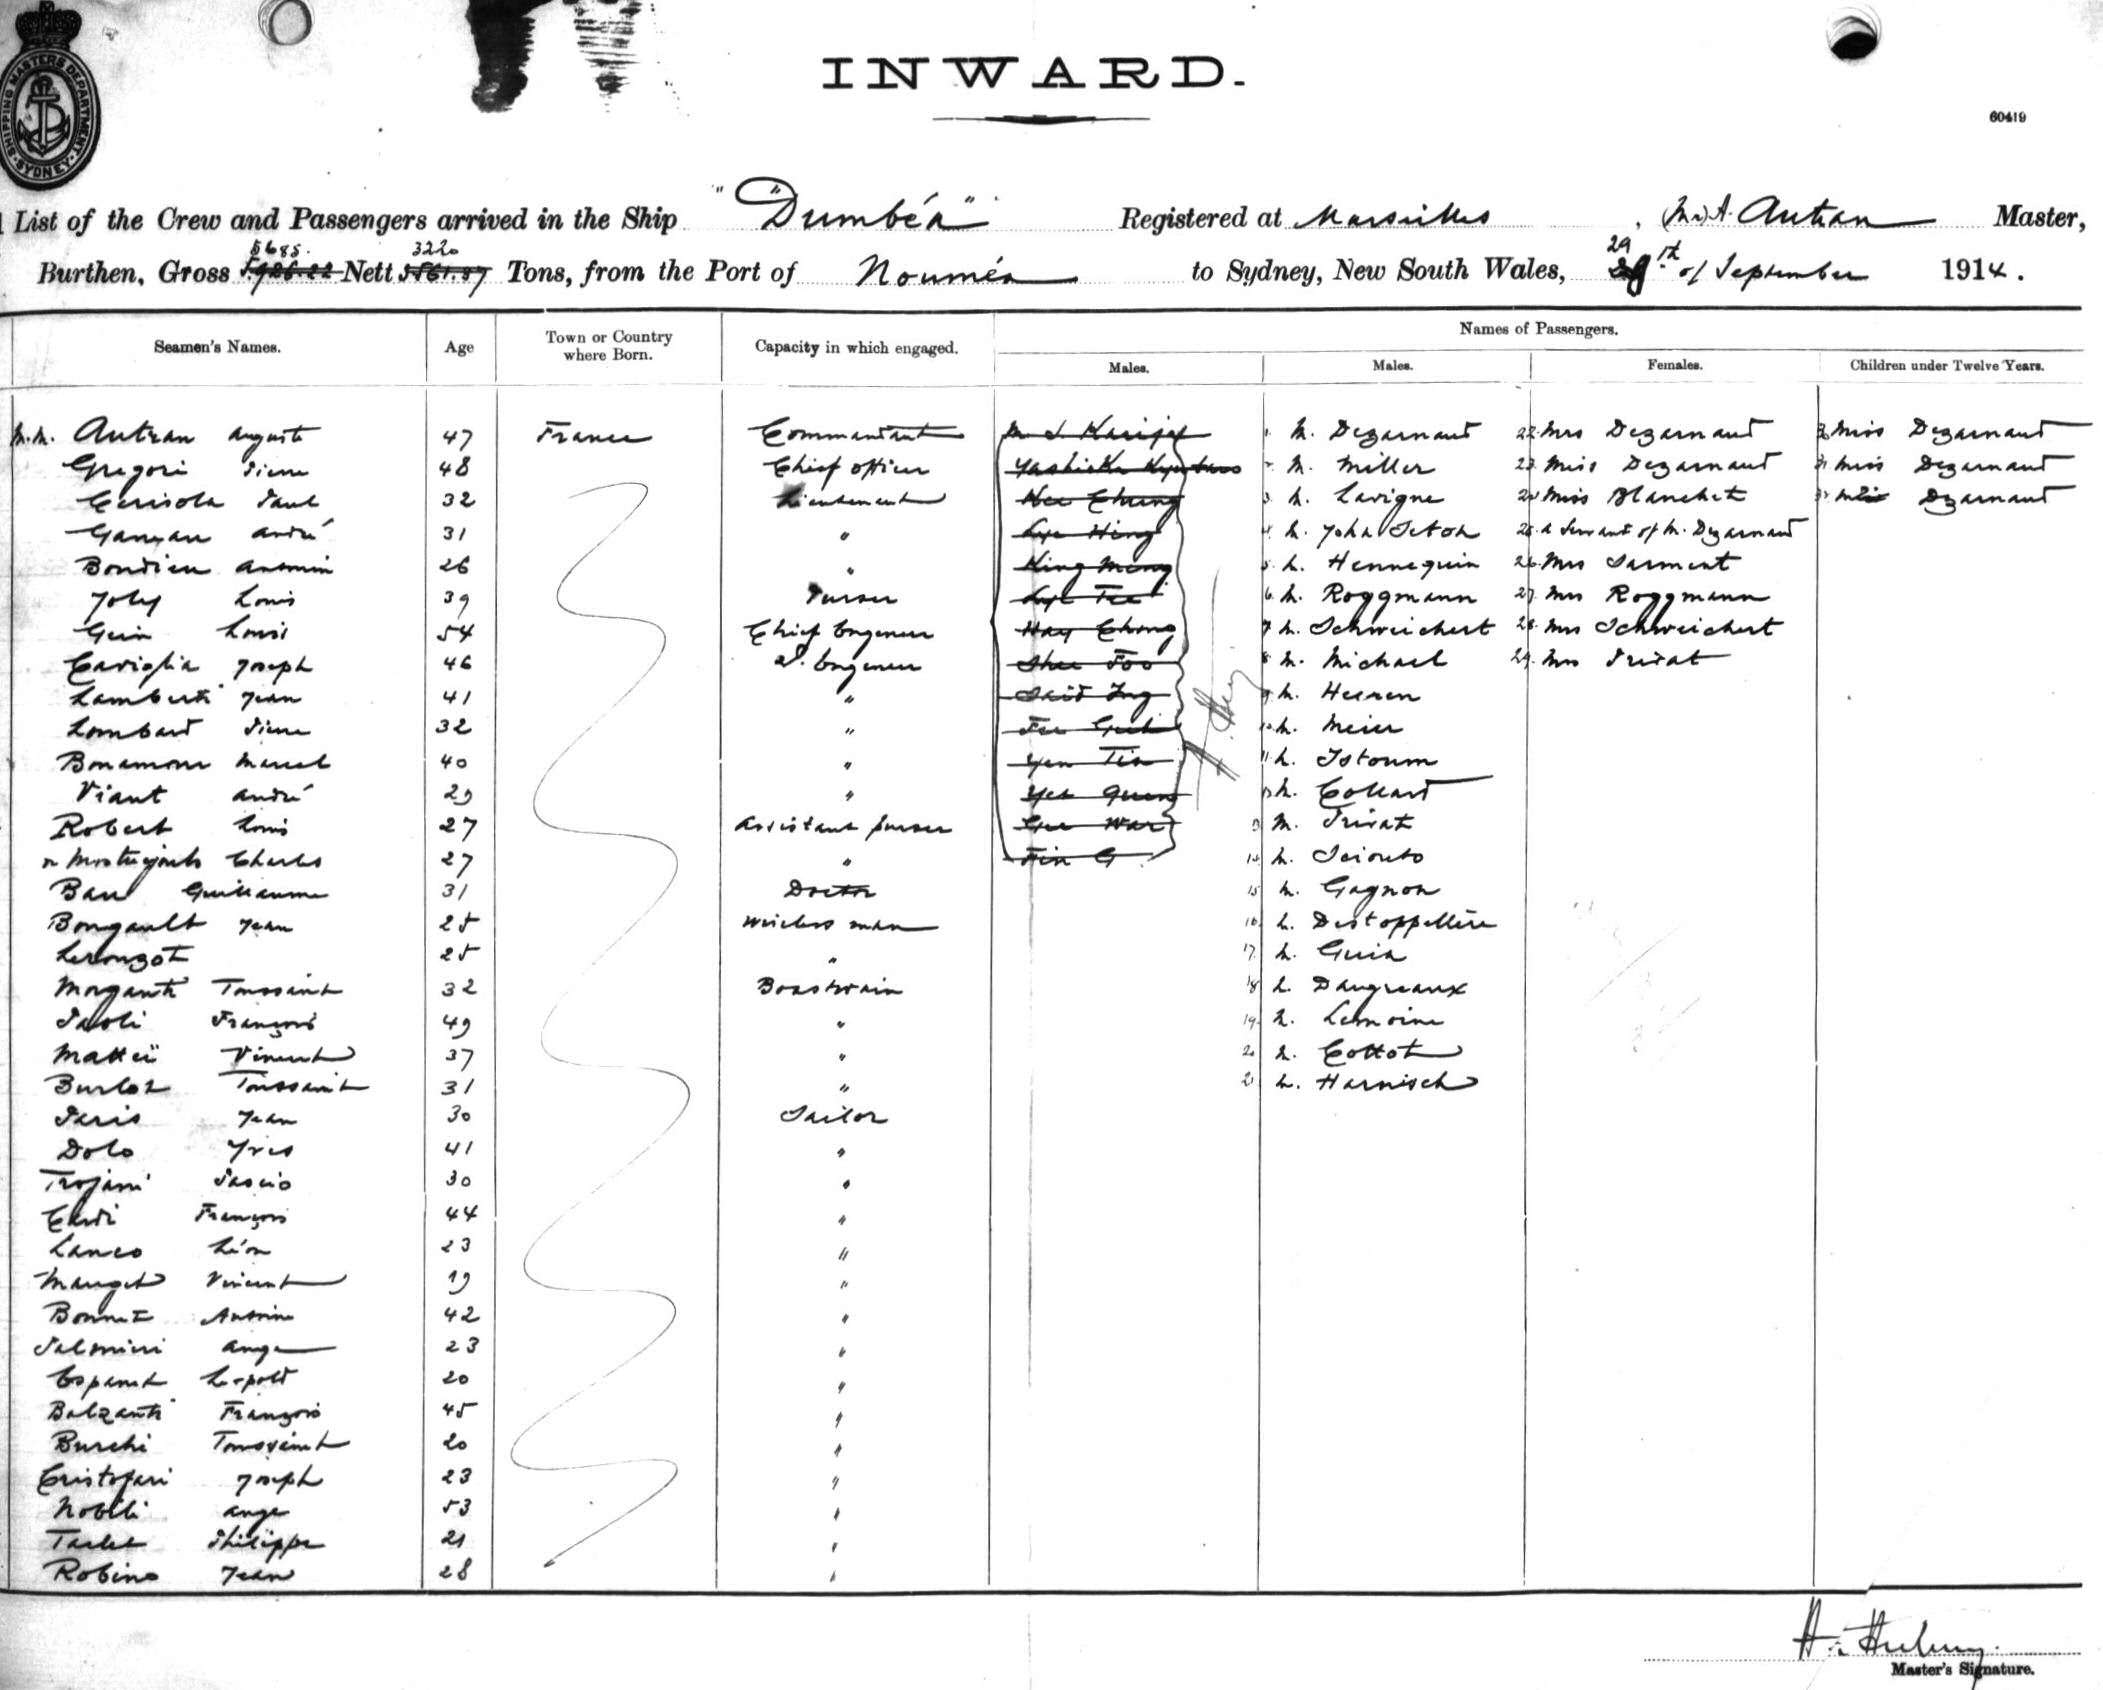 SHIPPING MASTERS DEPARTMENT
SYDNEY
INWARD.
60419
List of the Crew and Passengers arrived in the Ship "Dumbéa" Registered at Marseilles, (Mr) A. Autran Master,
5685. 3220 29
Burthen, Gross 5926.22 Nett Tons, from the Port of Nouméa to Sydney, New South Wales, th of September 1914.
Names of Passengers.
Seamen's Names. Age Town or Country where Born. Capacity in which engaged. Males. Males. Females. Children under Twelve Years.
M.M. Autran Auguste 47 France Commandant 1. M. Dezarnaud 22. Mrs Dezarnaud 30 Miss Dezarnaud
Gregori Pierre 48 Chief officer Yashioka 2. M. Miller 23. Miss Dezarnaud 31 Miss Dezarnaud
Cerisola Paul 32 Lieutenant Kee Chung 3. M. Lavigne 24 Miss Blanchet Dezarnaud
André 31 " Lye Hing 4. M. John Seton 25. a Servant of M. Dezarnaud
Bondieu Antonin 26 " King Meng 5. M. Hennequin 26 Mrs Sarment
Joly Louis 39 Purser 6. M. Roggmann 27. Mrs Roggmann
Guin Louis 54 Chief Engeneer Hay Chong 7 M. Schweichert 28. Mrs Schweichert
Caviglia Joseph 46 2d. Engeneer Shee Foo 8 M. Michael 29. Mrs Privat
Lamberti Jean 41 " 9 M. Heeren
Lombard Pierre 32 " 10 M. Meier
Bonamour Marcel 40 " Yen Tia 11 M. Istoum
Viant André 29 " Yet Quen 12 M. Collard
Robert Louis 27 Assistant purser Gee War 13 M. Privat
Charles 27 " Fin G 14 M. Sciouto
Bau Guillaume 31 Doctor 15 M. Gagnon
Bongault Jean 25 Wireless man 16 M. Destoppellère
Lerouzot 25 " 17. M. Guin
Morganti Toussaint 32 Boastwain 18 M. Daugreaux
Paoli François 49 " 19. M. Lemoine
Matteï Vincent 37 " 20 M. Cottot
Burlot Toussaint 31 " 21 M. Harnisch
Paris Jean 30 Sailor
Dolo Yves 41 "
Trojani Pascio 30 "
Cardi François 44 "
Lanco Léon 23 "
Mauget Vincent 19 "
Bonnet Antoine 42 "
Palmieri Ange 23 "
Espanet Léopold 20 "
Balzanti François 45 "
Burchi Toussaint 20 "
Cristofari Joseph 23 "
Nobili Ange 53 "
Philippe 21 "
Robino Jean 28 "
Master's Signature.